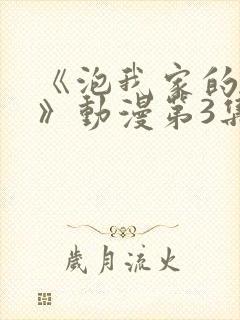 《泡我家的
》動漫第3集
歲月流火